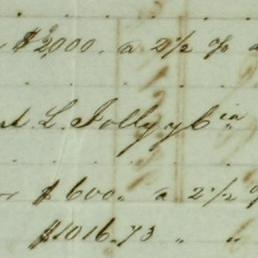 $2,000. a 2 1/2 %
L. Jolly y Cia
$600,, a 2 1/2 %
$1016.73 " "